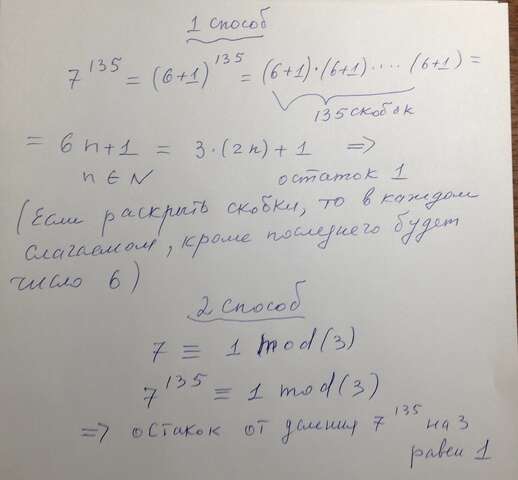 1 способ
7^135 = (6+1)^135 = (6+1)·(6+1)·....(6+1) =
135 скобок
= 6n+1 = 3·(2n)+1 =>
n ∈ N остаток 1
(Если раскрыть скобки, то в каждом
слагаемом, кроме последнего будет
число 6)
2 способ
7 ≡ 1 mod(3)
7^135 ≡ 1 mod(3)
=> остакок от деления 7^135 на 3
равен 1